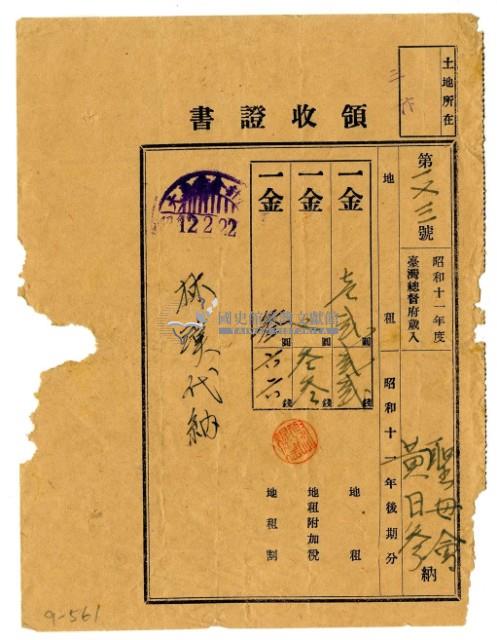 土地所在
三
領收證書
第二又三號
昭和十一年度
臺灣總督府歲入
地租
昭和十一年後期分
聖母會
黃日參
納
一金
壹貳圓貳貳錢
地租
一金
圓叁叁錢
地租附加稅
一金
圓
錢
地租割
12.2.22
代納
國史館臺灣文獻館
9-561